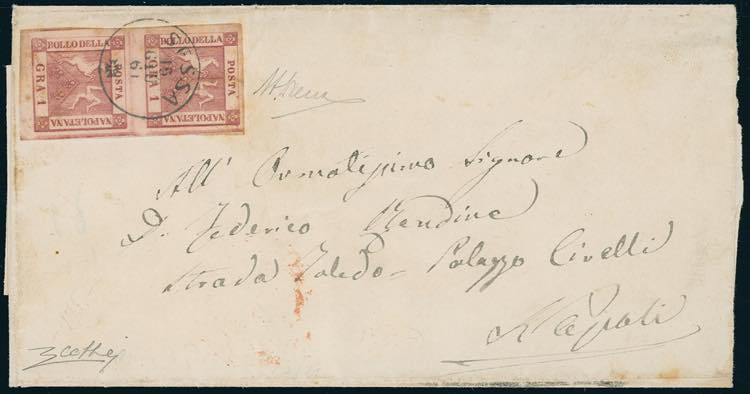 BOLLO DELLA
POSTA
NAPOLETANA
GRA 1
BOLLO DELLA
POSTA
NAPOLETANA
GRA 1
SESSA
15
GIU
61
All' Ornatissimo Signore
D. Federico
Strada Toledo - Palazzo Civelli
Napoli